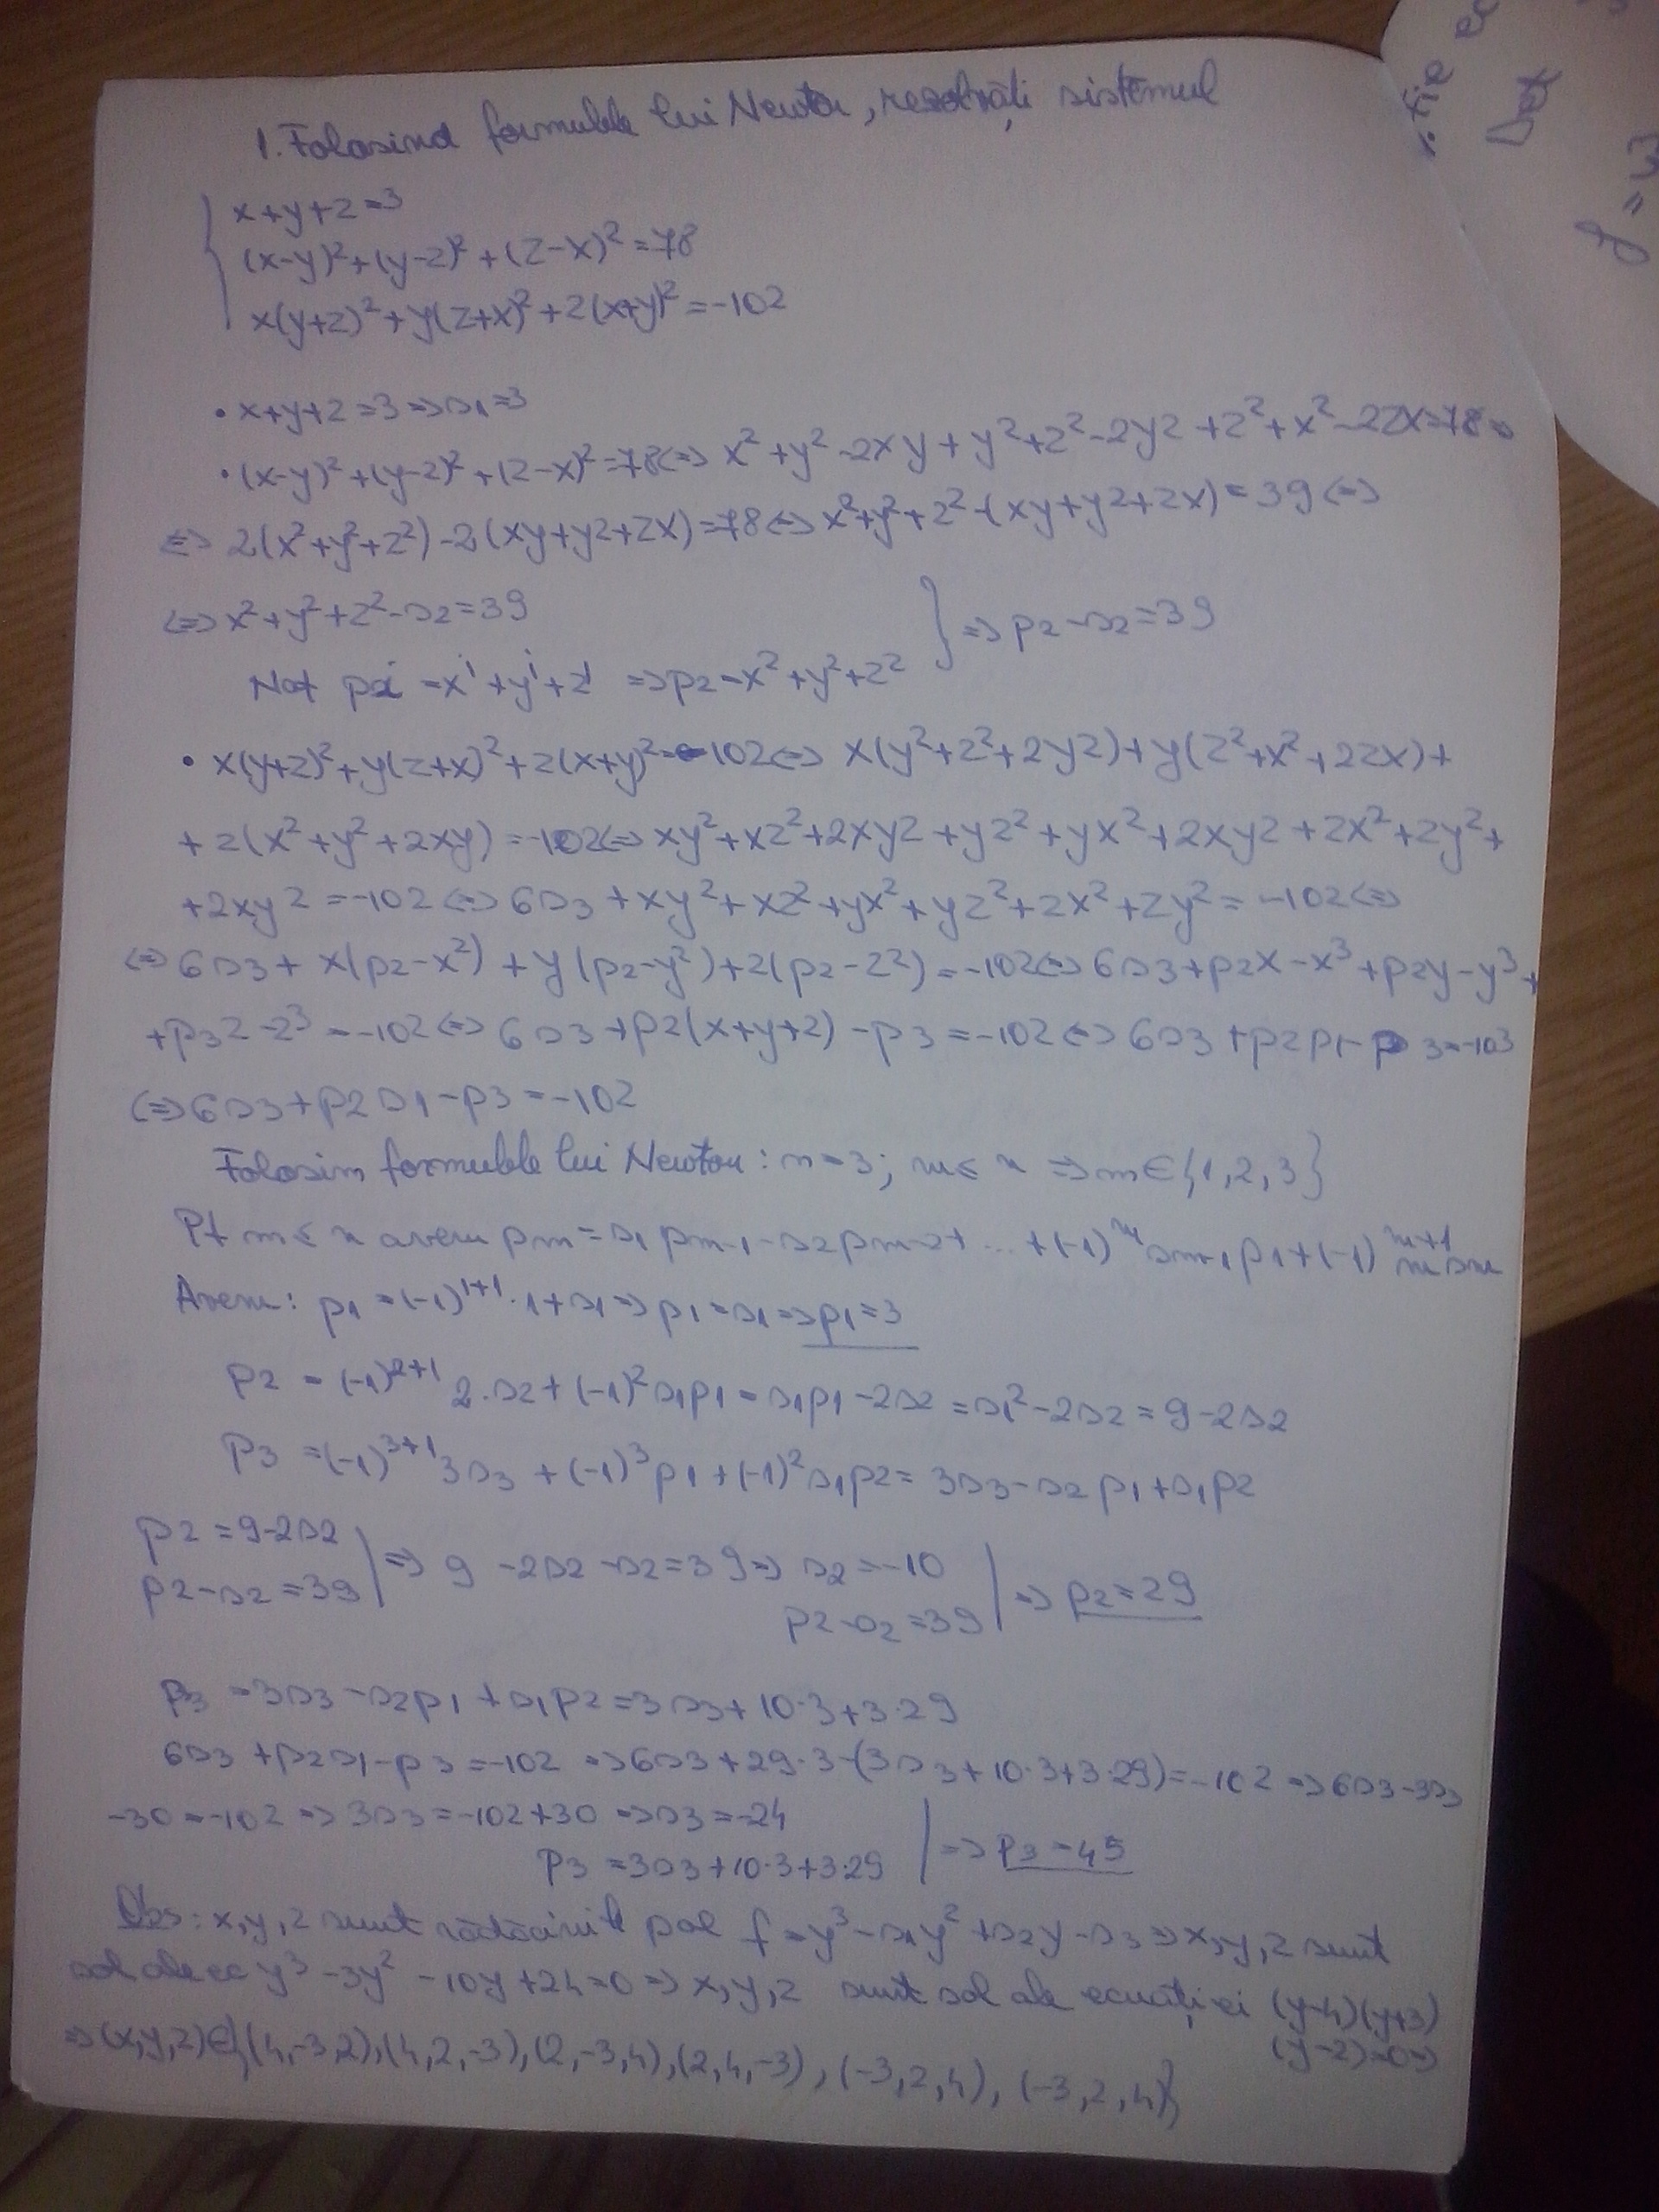 1. Folosind formulele lui Newton, rezolvați sistemul
x+y+z=3
(x-y)²+(y-z)²+(z-x)²=78
x(y+z)²+y(z+x)²+z(x+y)²=-102
• x+y+z=3=>s1=3
• (x-y)²+(y-z)²+(z-x)²=78<=> x²+y²-2xy+y²+z²-2yz+z²+x²-2zx=78<=>
<=> 2(x²+y²+z²)-2(xy+yz+zx)=78<=> x²+y²+z²-(xy+yz+zx)=39<=>
<=> x²+y²+z²-s2=39 } => p2-s2=39
Not pi=xⁱ+yⁱ+zⁱ => p2=x²+y²+z²
• x(y+z)²+y(z+x)²+z(x+y)²=-102<=> x(y²+z²+2yz)+y(z²+x²+2zx)+
+z(x²+y²+2xy)=-102<=> xy²+xz²+2xyz+yz²+yx²+2xyz+zx²+zy²+
+2xyz=-102<=> 6s3+xy²+xz²+yx²+yz²+zx²+zy²=-102<=>
<=> 6s3+x(p2-x²)+y(p2-y²)+z(p2-z²)=-102<=> 6s3+p2x-x³+p2y-y³+
+p3z-z³=-102<=> 6s3+p2(x+y+z)-p3=-102<=> 6s3+p2p1-p3=-103
<=> 6s3+p2s1-p3=-102
Folosim formulele lui Newton: n=3; m≤n => m∈{1,2,3}
Pt m≤n avem pm=s1pm-1-s2pm-2+...+(-1)ᵐsm-1p1+(-1)ᵐ⁺¹msm
Avem: p1=(-1)¹⁺¹·1+s1=>p1=s1=>p1=3
p2=(-1)²⁺¹2·s2+(-1)²s1p1=s1p1-2s2=s1²-2s2=9-2s2
p3=(-1)³⁺¹3s3+(-1)³p1+(-1)²s1p2=3s3-s2p1+s1p2
p2=9-2s2 | => 9-2s2-s2=39=> s2=-10 | => p2=29
p2-s2=39 | p2-s2=39 |
p3=3s3-s2p1+s1p2=3s3+10·3+3·29
6s3+p2s1-p3=-102 => 6s3+29·3-(3s3+10·3+3·29)=-102 => 6s3-3s3
-30=-102 => 3s3=-102+30 => s3=-24 | => p3=45
p3=3s3+10·3+3·29
Obs: x,y,z sunt rădăcinile pol f=y³-s1y²+s2y-s3=>x,y,z sunt
sol ale ec y³-3y²-10y+24=0 => x,y,z sunt sol ale ecuației (y-4)(y+3)
(y-2)=0=>
=>(x,y,z)∈{(4,-3,2),(4,2,-3),(2,-3,4),(2,4,-3),(-3,2,4),(-3,2,4)}